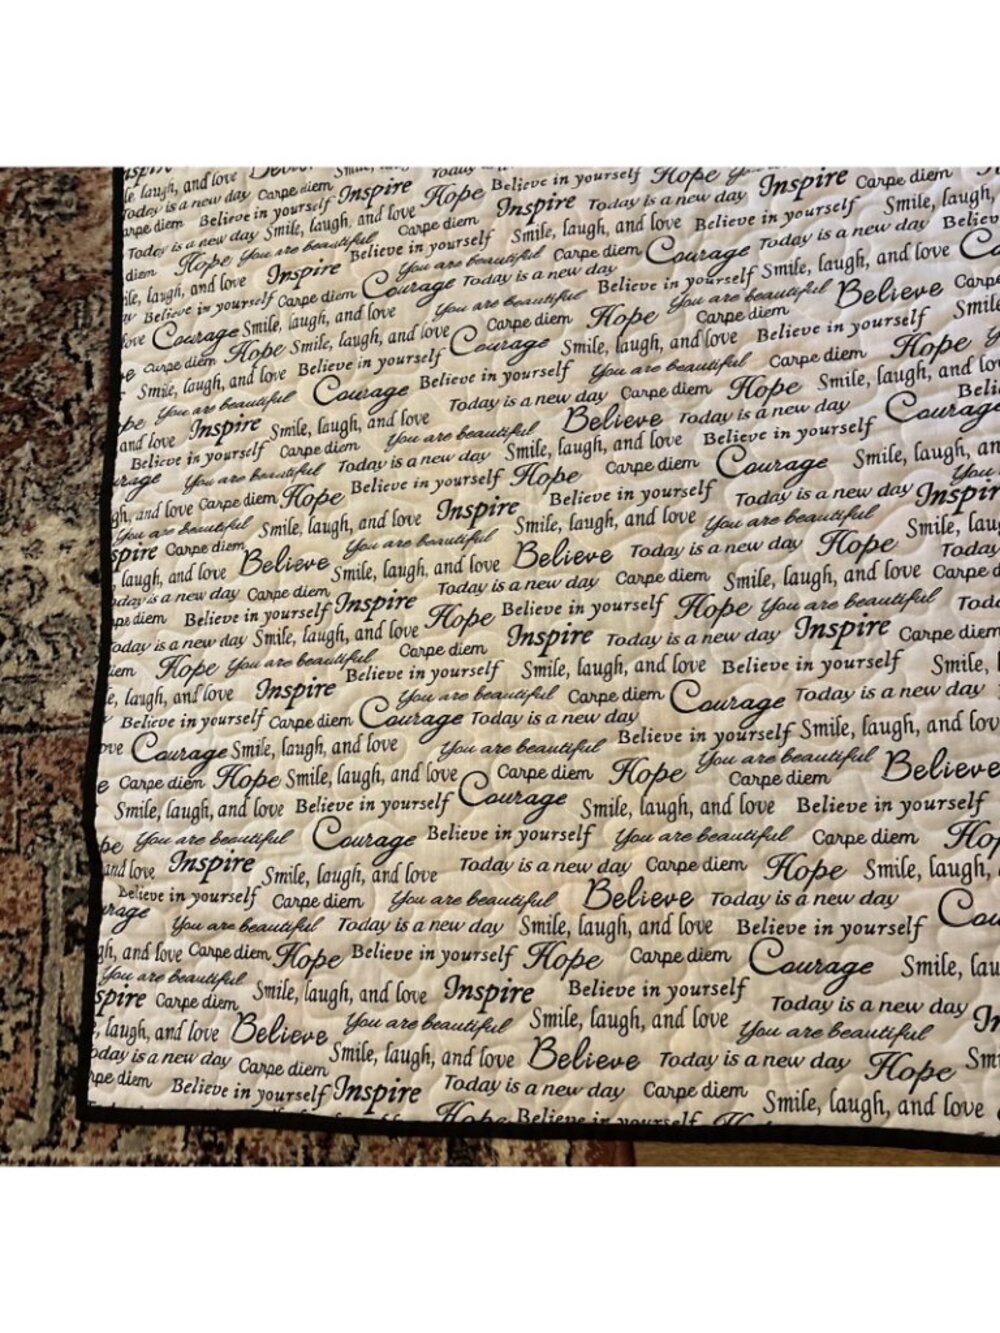 le, laugh, and love
Today is a new day Carpe diem Inspire Hope Believe in yourself Hope Inspire Carpe diem
Carpe diem Believe in yourself Smile, laugh, and love Carpe diem Inspire Today is a new day Smile, laugh,
Today is a new day Smile, laugh, and love Believe in yourself
diem Hope You are beautiful Believe in yourself You are beautiful Carpe diem Courage Today is a new day
ile, laugh, and love Inspire Courage Today is a new day Believe in yourself Smile, laugh, and love
Believe in yourself Carpe diem You are beautiful Hope You are beautiful Believe Carpe
ove Courage Smile, laugh, and love Carpe diem Carpe diem Smile
e Carpe diem Hope Smile, laugh, and love Courage Smile, laugh, and love Believe in yourself
Smile, laugh, and love Believe in yourself You are beautiful Carpe diem Hope
You are beautiful Courage Believe in yourself Today is a new day Carpe diem Hope Smile, laugh, and lo
and love Inspire Smile, laugh, and love Believe Today is a new day Courage
Believe in yourself Carpe diem You are beautiful Smile, laugh, and love Believe in yourself
urage You are beautiful Today is a new day Carpe diem Courage Smile, laugh, an
gh, and love Carpe diem Hope Believe in yourself Hope Believe in yourself Today is a new day Inspir
You are beautiful Smile, laugh, and love Inspire Smile, laugh, and love You are beautiful Smile, lau
spire Carpe diem You are beautiful Believe Today is a new day Hope Today
laugh, and love Believe Smile, laugh, and love Carpe diem Smile, laugh, and love Carpe d
oday is a new day Carpe diem Today is a new day
rpe diem Believe in yourself Inspire Hope Believe in yourself Hope You are beautiful Toda
Today is a new day Smile, laugh, and love Carpe diem Inspire Today is a new day Inspire Carpe diem
iem Hope You are beautiful Believe in yourself Smile, laugh, and love Believe in yourself Smile, l
e, laugh, and love Inspire You are beautiful Carpe diem Courage Today is a new day
Believe in yourself Carpe diem Courage Today is a new day Believe in yourself Smile, laugh, and lov
ove Courage Smile, laugh, and love You are beautiful You are beautiful Believe
e Carpe diem Hope Smile, laugh, and love Carpe diem Hope Carpe diem
Smile, laugh, and love Believe in yourself Courage Smile, laugh, and love Believe in yourself
pe You are beautiful Courage Believe in yourself You are beautiful Carpe diem Hop
and love Inspire Smile, laugh, and love Today is a new day Carpe diem Hope Smile, laugh,
Believe in yourself Carpe diem You are beautiful Believe Today is a new day Cou
urage You are beautiful Today is a new day Smile, laugh, and love Believe in yourself
gh, and love Carpe diem Hope Believe in yourself Hope Carpe diem Courage Smile, lau
You are beautiful Smile, laugh, and love Inspire Believe in yourself Today is a new day In
spire Carpe diem You are beautiful Smile, laugh, and love You are beautiful
, laugh, and love Believe Smile, laugh, and love Believe Today is a new day Hope Smi
oday is a new day Carpe diem
rpe diem Believe in yourself Inspire Today is a new day Carpe diem Smile, laugh, and love
Hope Believe in yourself